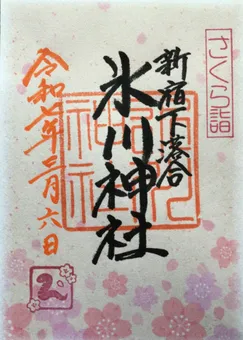 さくら詣
新宿下落合
氷川神社
令和七年三月六日